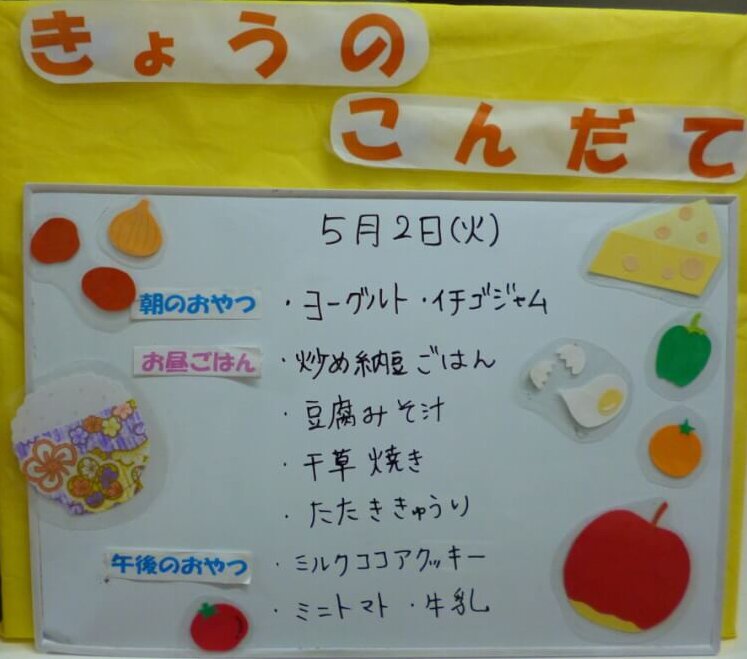 きょうの
こんだて
5月2日(火)
朝のおやつ ・ヨーグルト・イチゴジャム
お昼ごはん ・炒め納豆ごはん
・豆腐みそ汁
・千草焼き
・たたききゅうり
午後のおやつ ・ミルクココアクッキー
・ミニトマト・牛乳